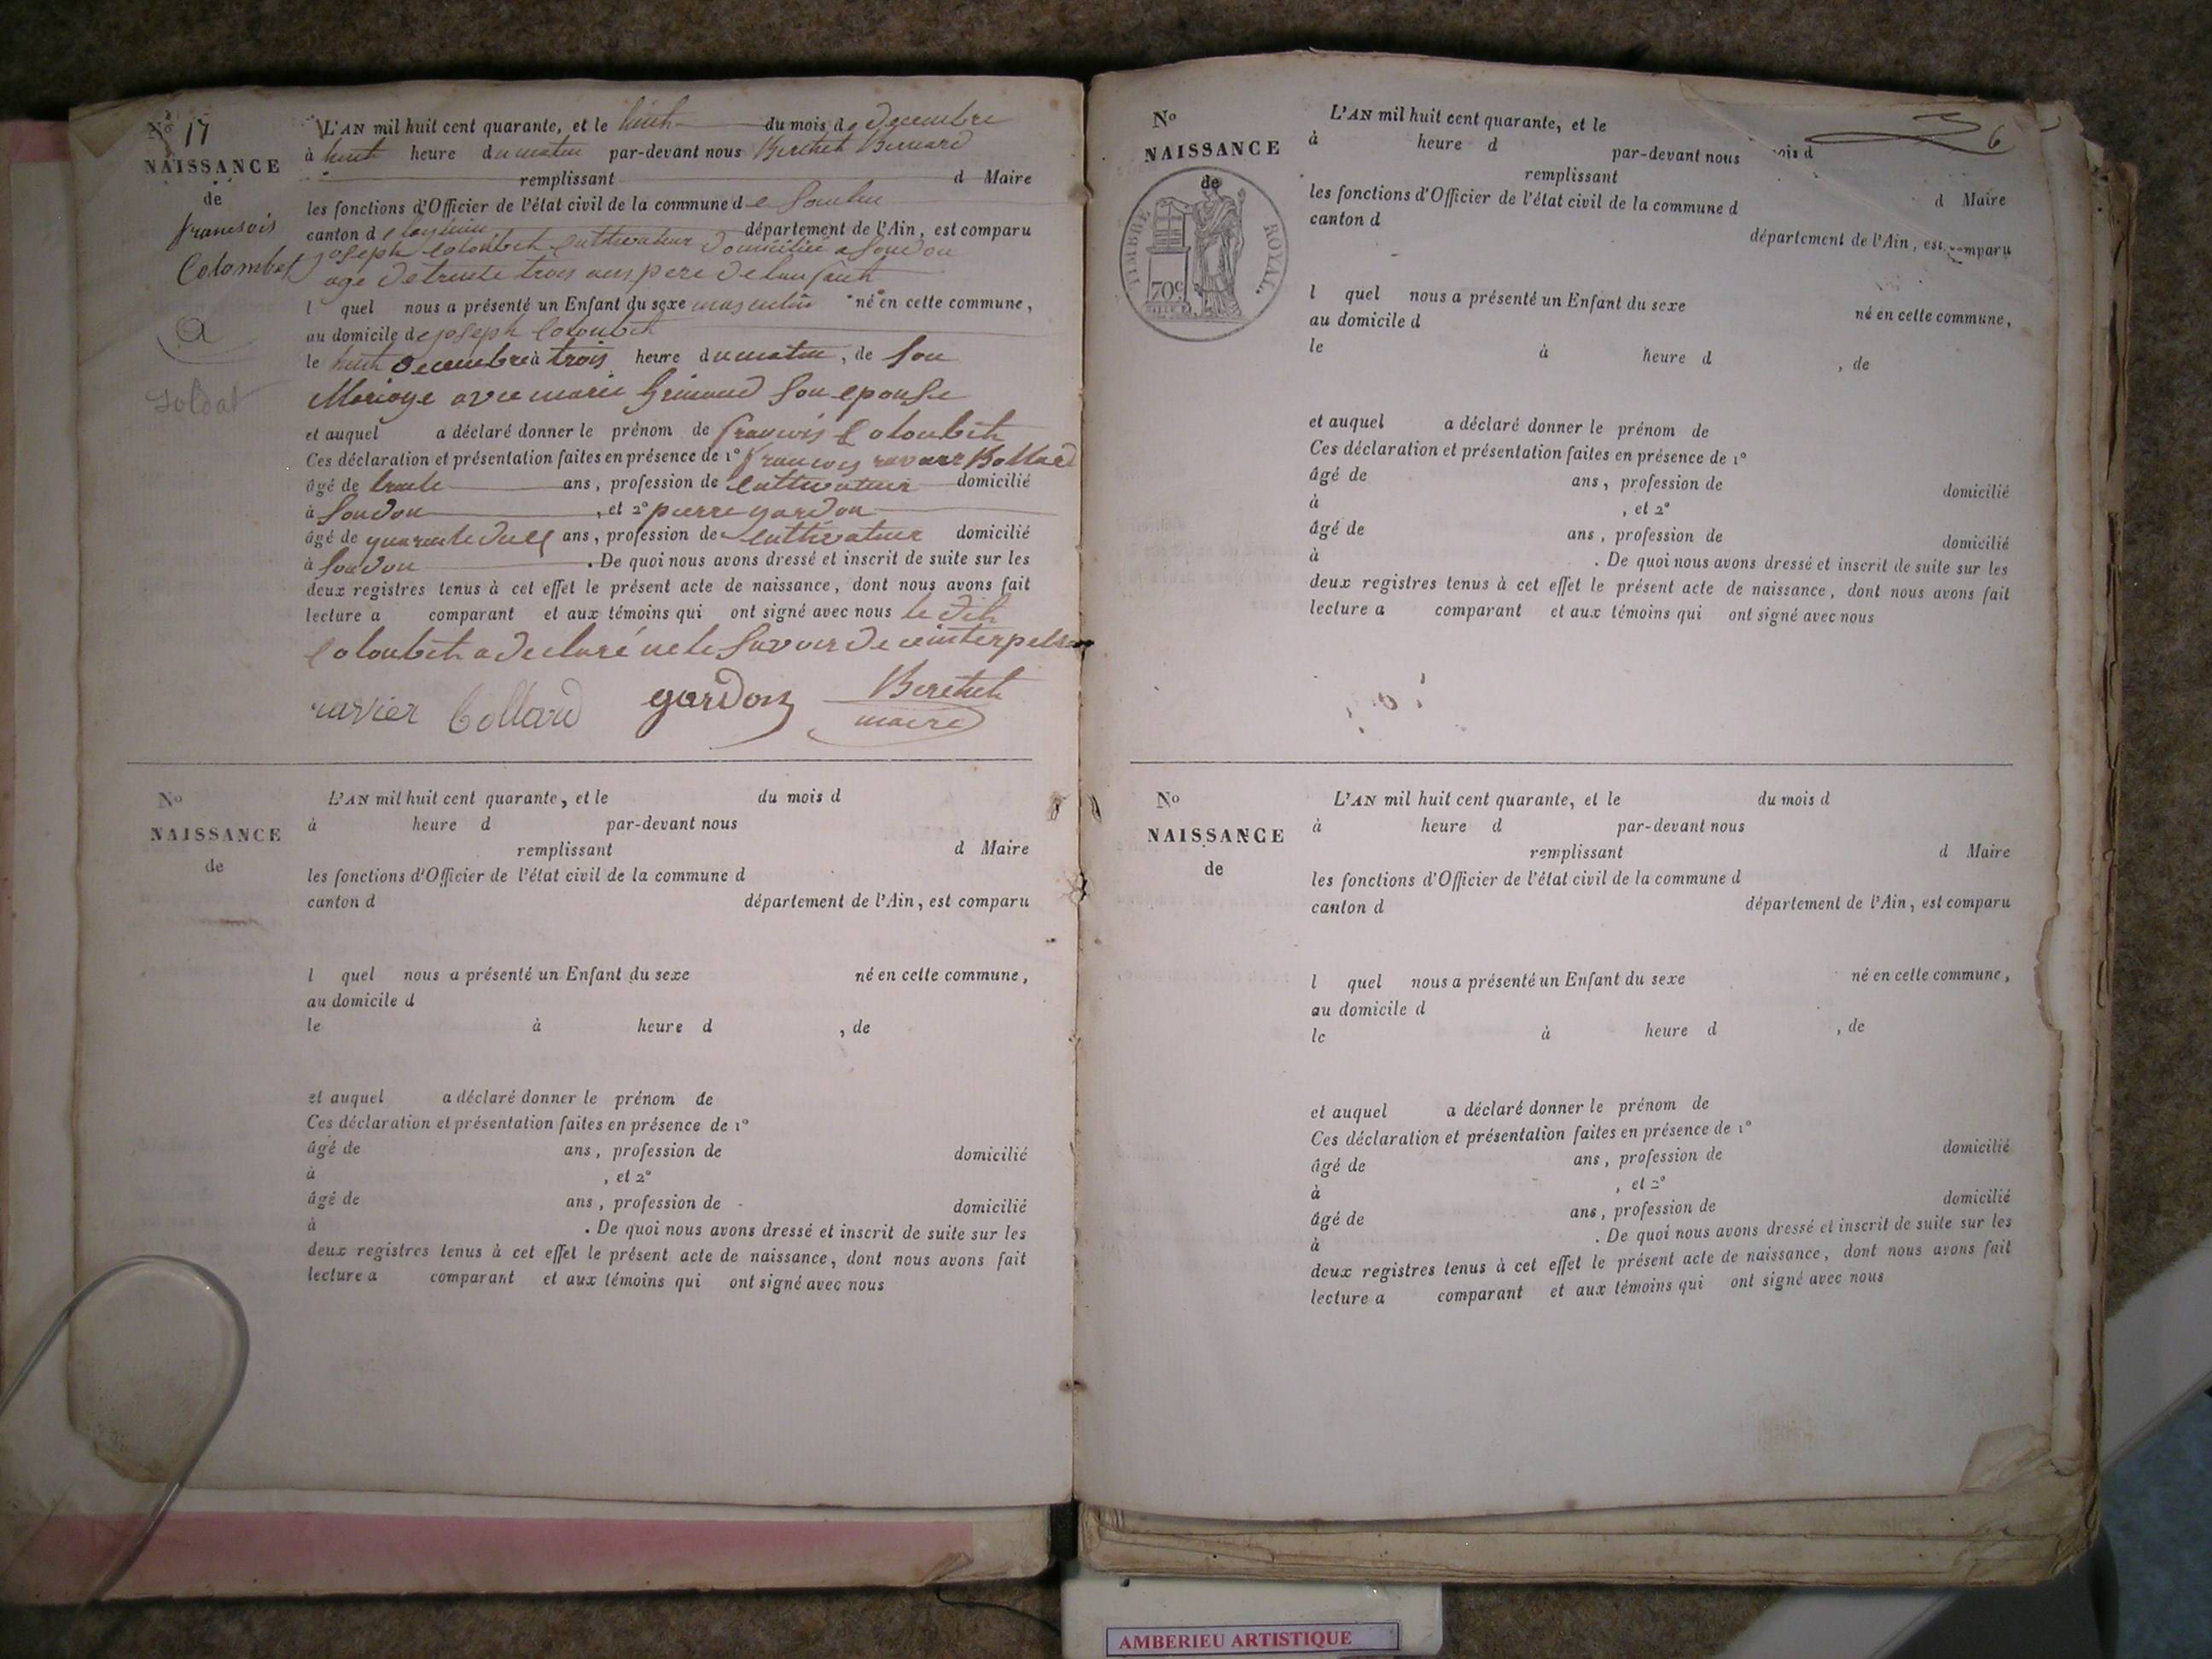 No 17
NAISSANCE
de
francois
Colombet
a
soldat
L'AN mil huit cent quarante, et le huit du mois de decembre
à huit heure du matin par-devant nous Berthet Bernard
remplissant d Maire
les fonctions d'Officier de l'état civil de la commune de
canton de département de l'Ain, est comparu
joseph Coloubet cultivateur domicilié a Soudon
age de trente trois ans pere de lenfant
l quel nous a présenté un Enfant du sexe masculin né en cette commune,
au domicile de joseph Coloubet
le huit decembre à trois heure du matin, de son
Mariage avec marie Grimaud son epouse
et auquel a déclaré donner le prénom de francois Coloubet
Ces déclaration et présentation faites en présence de 1º francois Bollard
âgé de trente ans, profession de cultivateur domicilié
à Soudon, et 2º pierre gardon
âgé de quarante deux ans, profession de cultivateur domicilié
à Soudon. De quoi nous avons dressé et inscrit de suite sur les
deux registres tenus à cet effet le présent acte de naissance, dont nous avons fait
lecture a comparant et aux témoins qui ont signé avec nous le dit
Coloubet a declaré ne le savoir de ce interpelé
ravier Collard gardon Berthet
maire
No
NAISSANCE
de
L'AN mil huit cent quarante, et le du mois d
à heure d par-devant nous
remplissant d Maire
les fonctions d'Officier de l'état civil de la commune d
canton d département de l'Ain, est comparu
l quel nous a présenté un Enfant du sexe né en cette commune,
au domicile d
le à heure d , de
et auquel a déclaré donner le prénom de
Ces déclaration et présentation faites en présence de 1º
âgé de ans, profession de domicilié
à , et 2º
âgé de ans, profession de domicilié
à . De quoi nous avons dressé et inscrit de suite sur les
deux registres tenus à cet effet le présent acte de naissance, dont nous avons fait
lecture a comparant et aux témoins qui ont signé avec nous
No
NAISSANCE
de
TIMBRE ROYAL.
70c
6
L'AN mil huit cent quarante, et le ois d
à heure d par-devant nous
remplissant d Maire
les fonctions d'Officier de l'état civil de la commune d
canton d département de l'Ain, est comparu
l quel nous a présenté un Enfant du sexe né en cette commune,
au domicile d
le à heure d , de
et auquel a déclaré donner le prénom de
Ces déclaration et présentation faites en présence de 1º
âgé de ans, profession de domicilié
à , et 2º
âgé de ans, profession de domicilié
à . De quoi nous avons dressé et inscrit de suite sur les
deux registres tenus à cet effet le présent acte de naissance, dont nous avons fait
lecture a comparant et aux témoins qui ont signé avec nous
No
NAISSANCE
de
L'AN mil huit cent quarante, et le du mois d
à heure d par-devant nous
remplissant d Maire
les fonctions d'Officier de l'état civil de la commune d
canton d département de l'Ain, est comparu
l quel nous a présenté un Enfant du sexe né en cette commune,
au domicile d
le à heure d , de
et auquel a déclaré donner le prénom de
Ces déclaration et présentation faites en présence de 1º
âgé de ans, profession de domicilié
à , et 2º
âgé de ans, profession de domicilié
à . De quoi nous avons dressé et inscrit de suite sur les
deux registres tenus à cet effet le présent acte de naissance, dont nous avons fait
lecture a comparant et aux témoins qui ont signé avec nous
AMBERIEU ARTISTIQUE